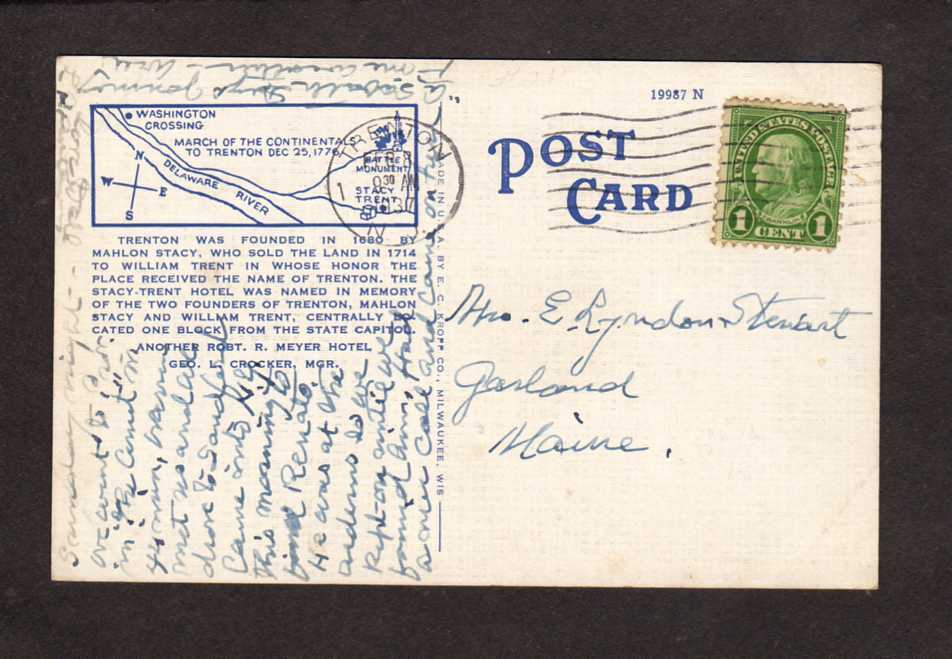 19987 N
POST
CARD
UNITED STATES POSTAGE
FRANKLIN
1 CENT 1
TRENTON
1
9 30 AM
N.J.
WASHINGTON
CROSSING
MARCH OF THE CONTINENTALS
TO TRENTON DEC 25, 1776
BATTLE
MONUMENT
STACY
TRENT
DELAWARE RIVER
N
W E
S
TRENTON WAS FOUNDED IN 1680 BY
MAHLON STACY, WHO SOLD THE LAND IN 1714
TO WILLIAM TRENT IN WHOSE HONOR THE
PLACE RECEIVED THE NAME OF TRENTON. THE
STACY-TRENT HOTEL WAS NAMED IN MEMORY
OF THE TWO FOUNDERS OF TRENTON, MAHLON
STACY AND WILLIAM TRENT, CENTRALLY LO-
CATED ONE BLOCK FROM THE STATE CAPITOL.
ANOTHER ROBT. R. MEYER HOTEL
GEO. L. CROCKER, MGR.
MADE IN U.S.A. BY E. C. KROPP CO., MILWAUKEE, WIS
Mrs. E. Lyndon Stewart
Garland
Maine.
Sunday night -
we went to
in
met us and we
drove to Sanford
Came into N.Y.
this morning to
find Renato.
He was at the
so we
kept on until we
found him. Had
a nice call and came on here
"A Sabbath Day's Journey